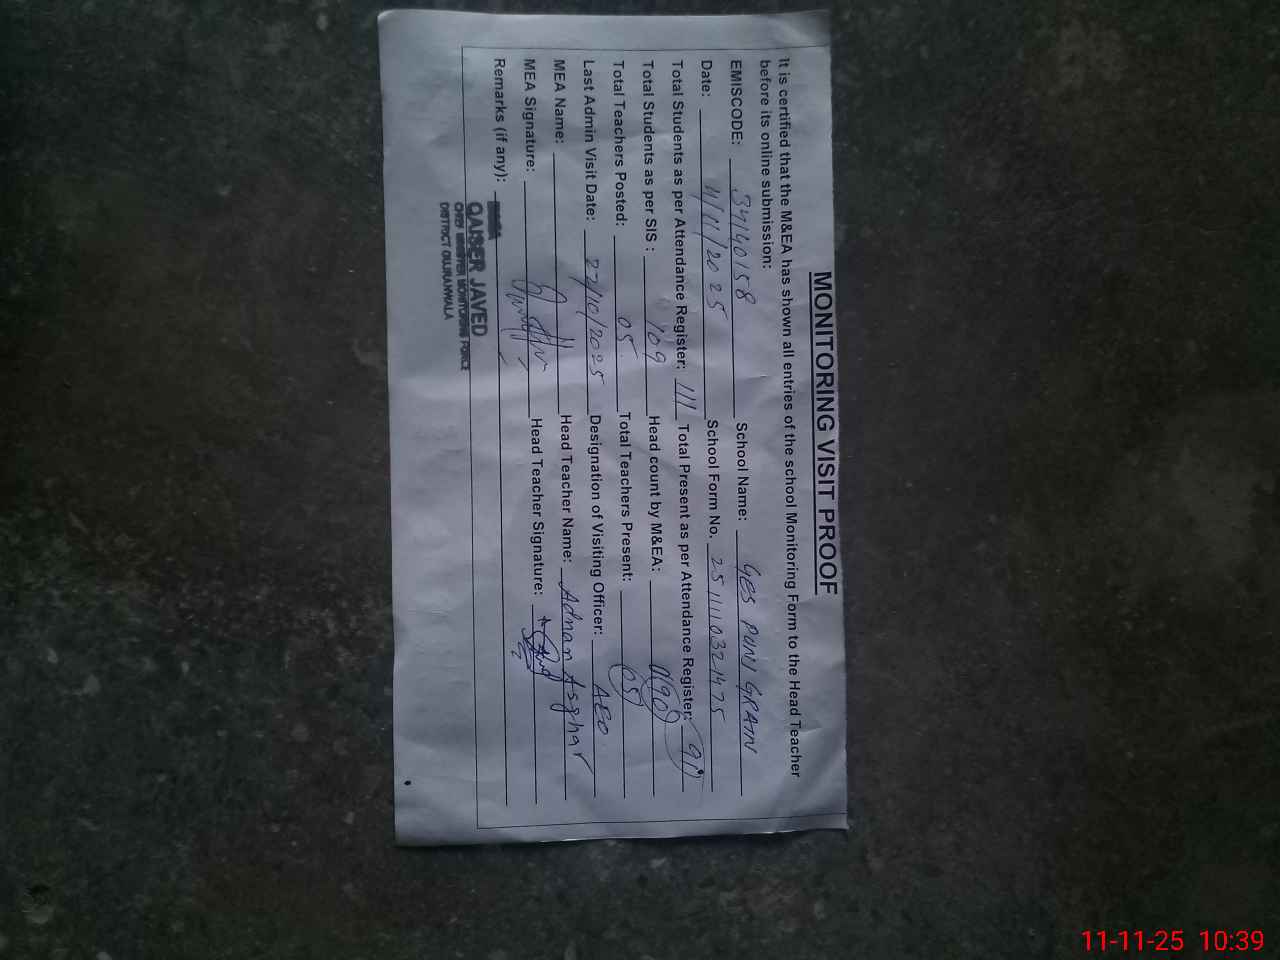 MONITORING VISIT PROOF
It is certified that the M&EA has shown all entries of the school Monitoring Form to the Head Teacher
before its online submission:
EMISCODE: 34140158 School Name: GES PUNJ GRAIN
Date: 11/11/2025 School Form No. 25111110321475
Total Students as per Attendance Register: 111 Total Present as per Attendance Register: 91
Total Students as per SIS : 109 Head count by M&EA: 90
Total Teachers Posted: 05 Total Teachers Present: 05
Last Admin Visit Date: 27/10/2025 Designation of Visiting Officer: AEO
MEA Name: Head Teacher Name: Adnan Asghar
MEA Signature: Head Teacher Signature:
Remarks (if any):
QAISER JAVED
CHIEF MINISTER MONITORING FORCE
DISTRICT GUJRANWALA
11-11-25 10:39